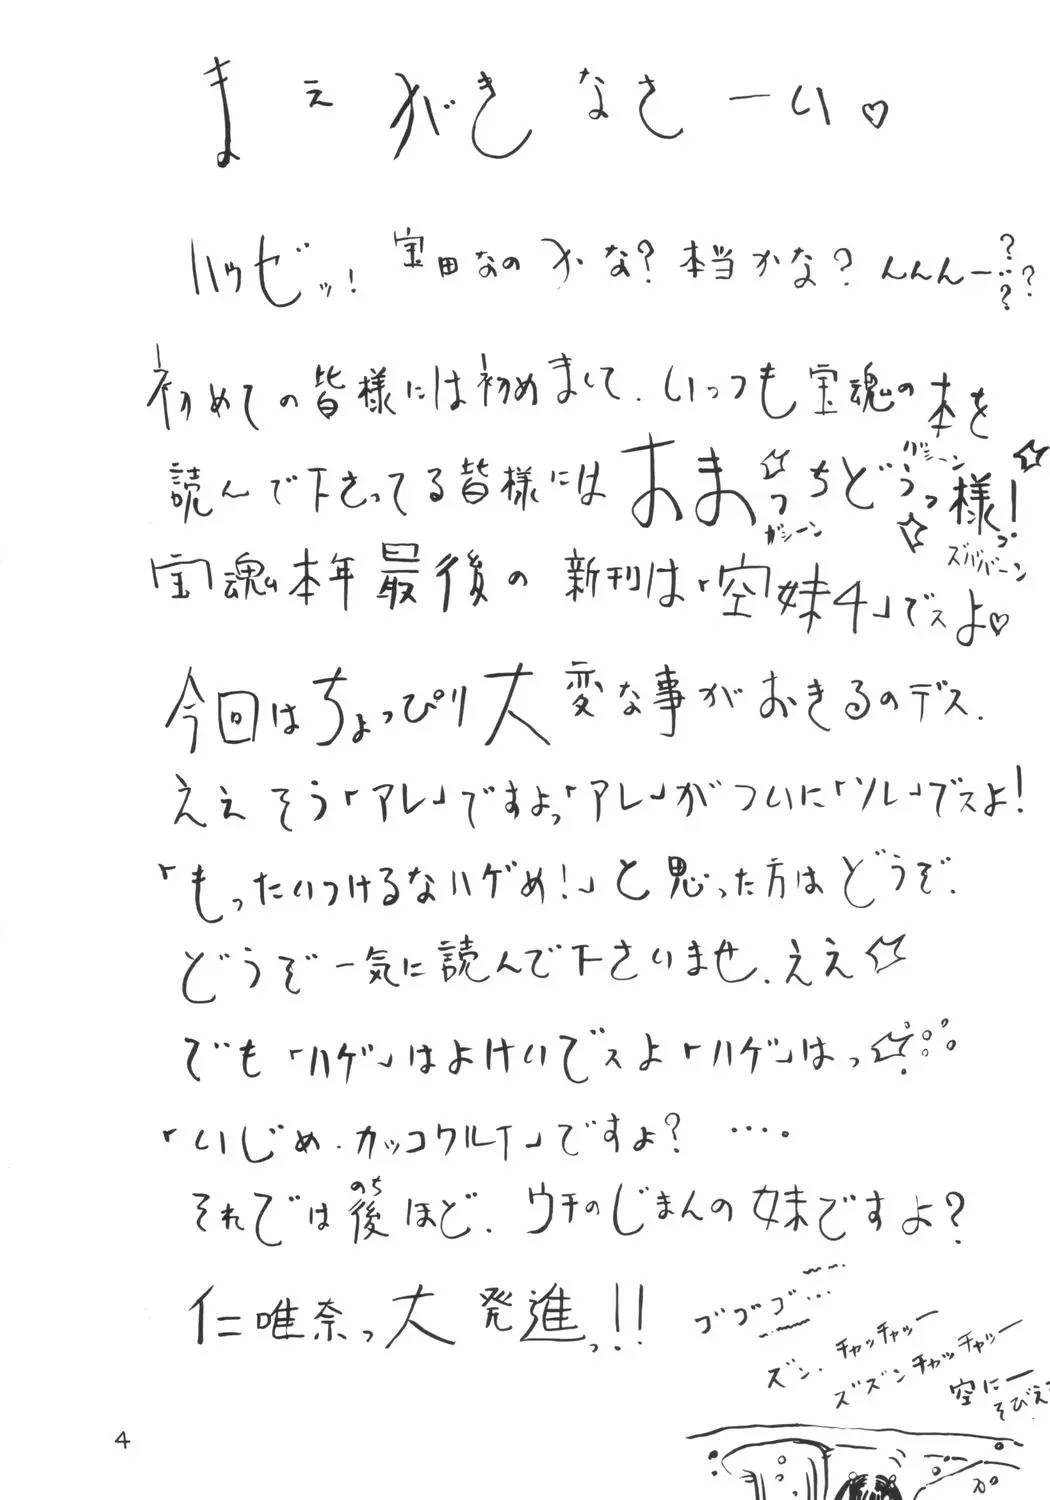 まえがきなさーい♡
ハゥゼッ! 宝田なのかな?本当かな?んんんー???
初めての皆様には初めまして.いっつも宝魂の本を
読んで下さってる皆様にはおまっちどうっ様っ!
ガシーン
ガシーン
ズババーン
宝魂本年最後の新刊は「空妹4」でスよ♡
今回はちょっぴり大変な事がおきるのデス.
ええそう「アレ」ですよっ「アレ」がついに「ソレ」でスよ!
「もったいつけるなハゲめ!」と思った方はどうぞ.
どうぞ一気に読んで下さいませ.ええ☆
でも「ハゲ」はよけいでスよ「ハゲ」はっ☆
「いじめ.カッコワルイ」ですよ?….
それでは後ほど.ウチのじまんの妹ですよ?
のち
仁唯奈っ大発進っ!!
ゴゴゴゴ…
ズン.チャッチャッー
ズズンチャッチャッー
空にー
そびえ
4